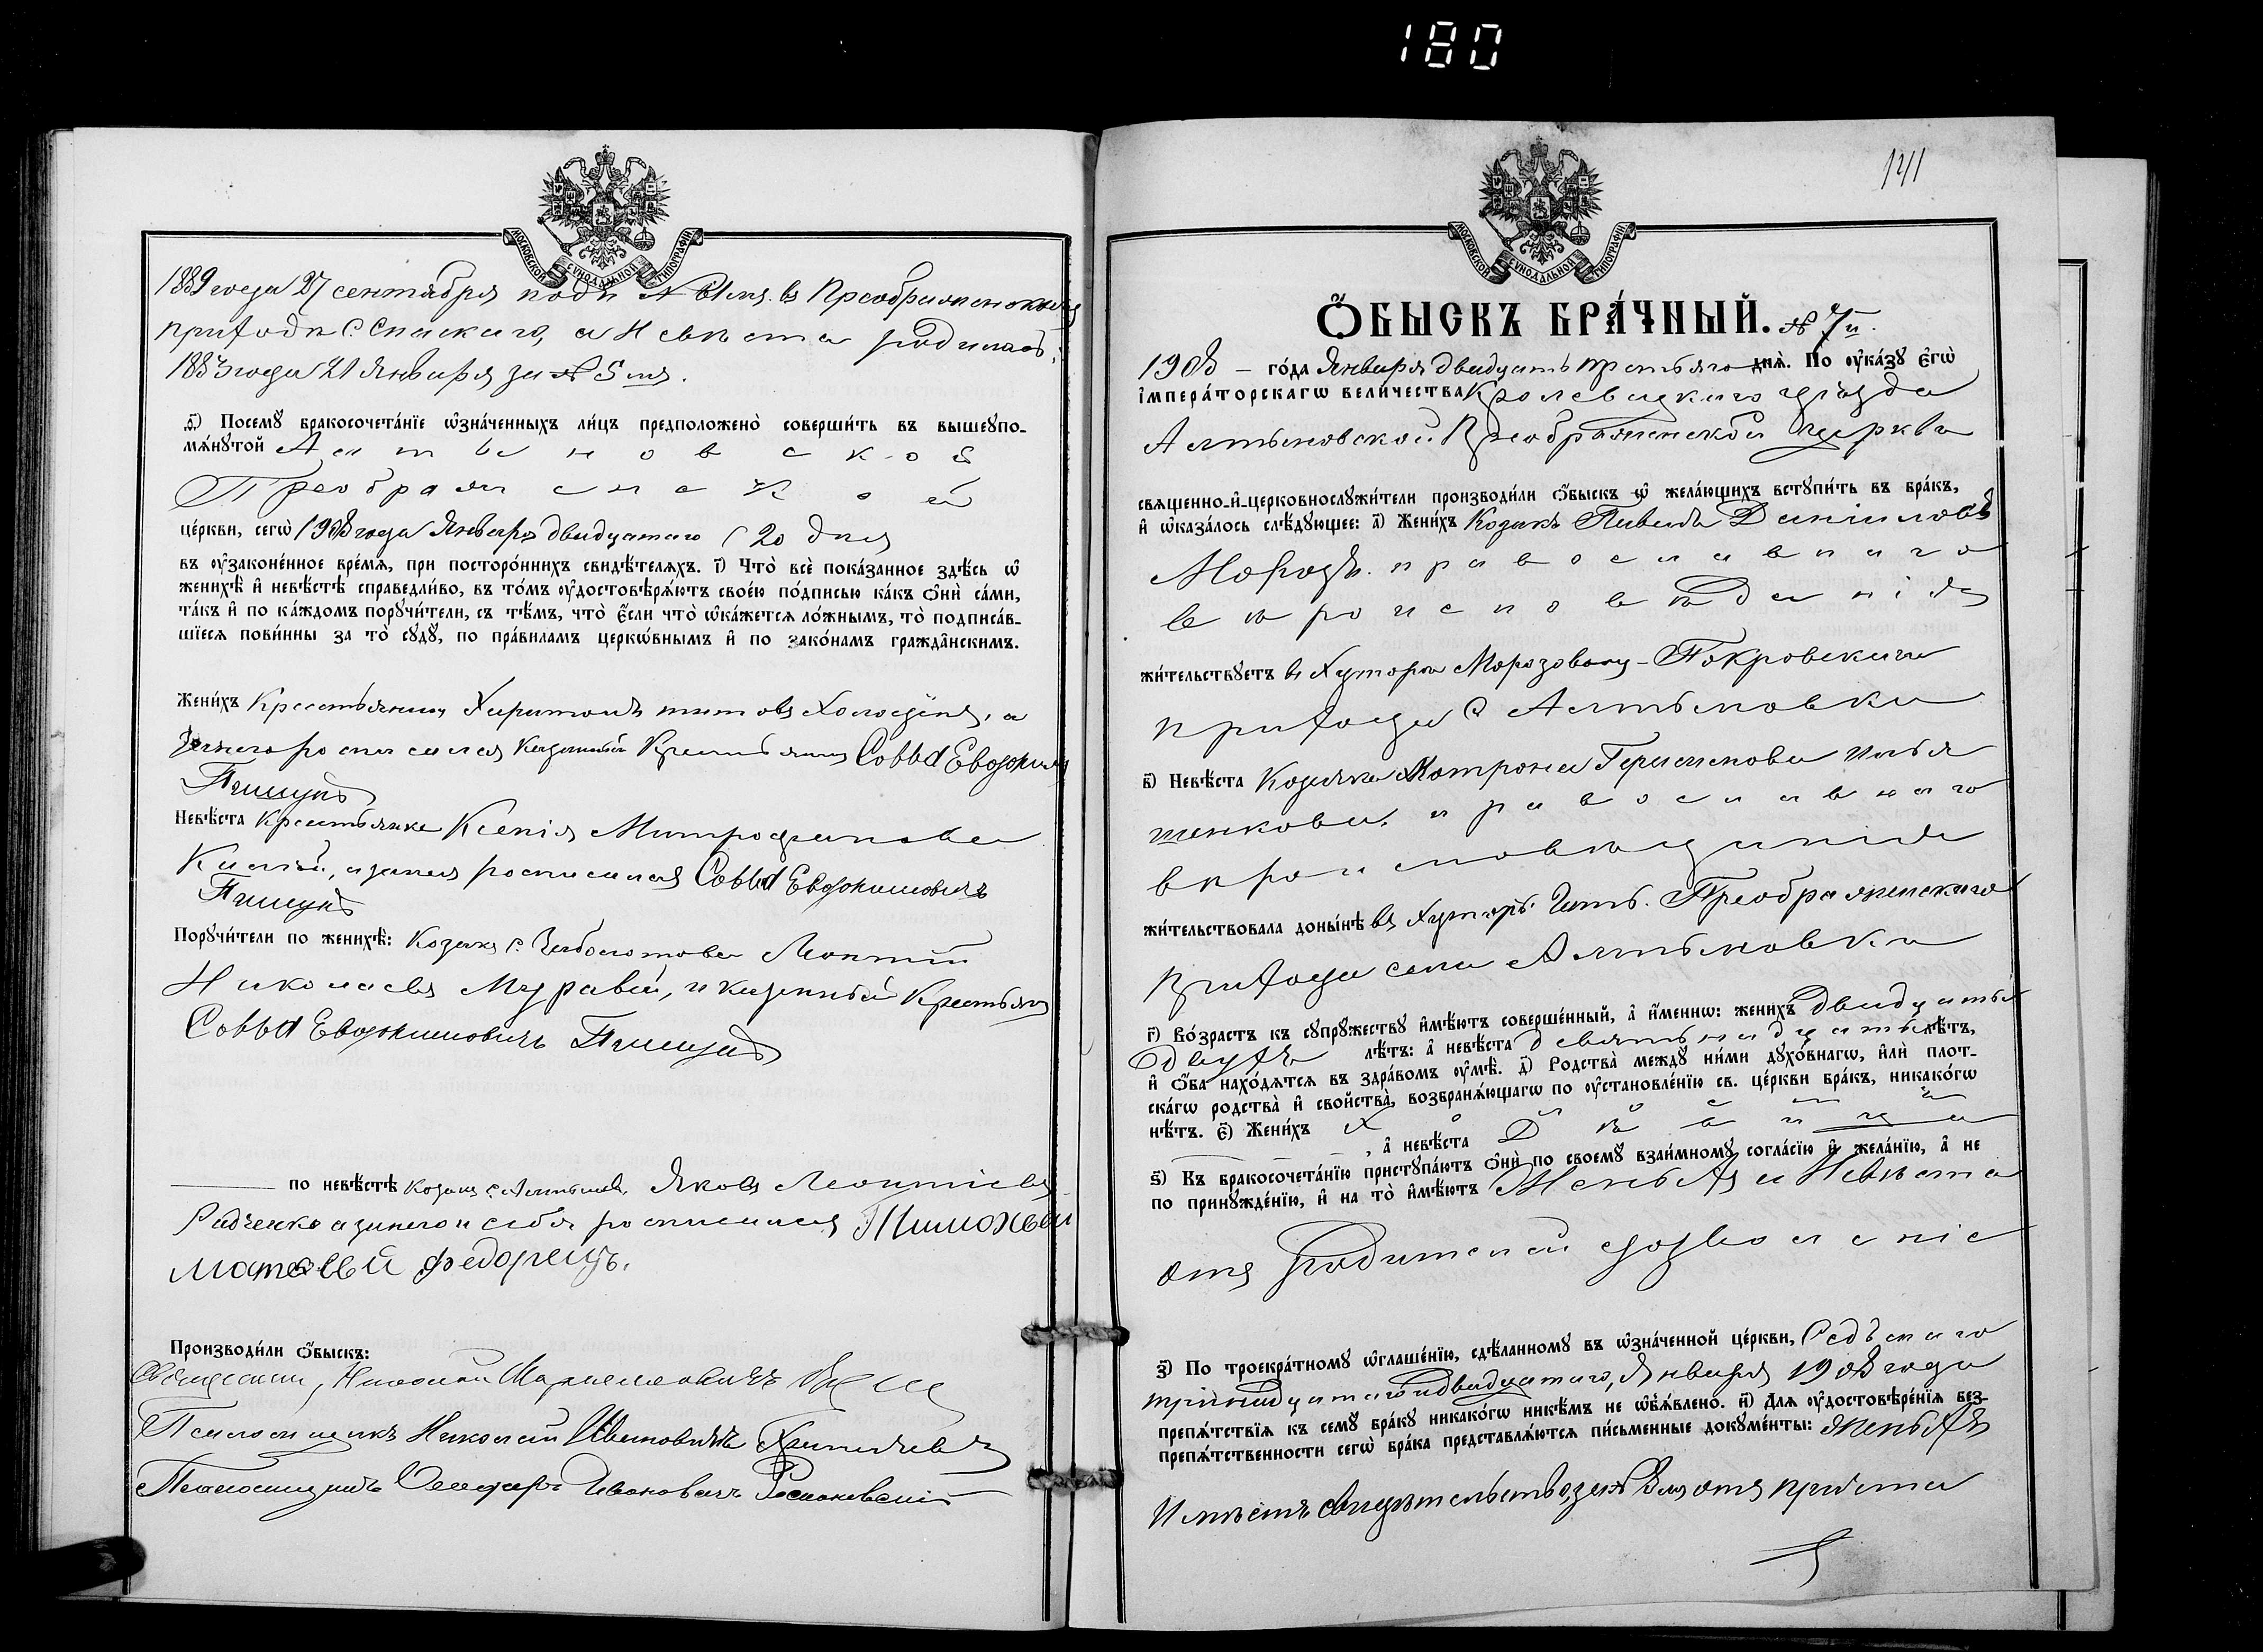 180
МОСКОВСКОЙ СѴНОДАЛЬНОЙ ТИПОГРАФІИ
1889 года 27 сентября подъ № въ Преображенскомъ
приходѣ с. Спаскаго, а Невѣста родилась
1883 года 21 Января за № 5 мъ.
д҃) Посемꙋ бракосочета́нїе ѡ҆зна́ченныхъ ли́цъ предположено̀ соверши́ть въ вышеꙋпо-
мѧ́нꙋтой Алтыновской
Преображенской
це́ркви, сегѡ̀ 1908 года Января двадцатаго (20 дня
въ ᲂу҆законе́нное вре́мѧ, при посторо́ннихъ свидѣ́телѧхъ. і҃) Что̀ всѐ пока́занное здѣ́сь ѡ҆
женихѣ̀ и҆ невѣ́стѣ справедли́во, въ то́мъ ᲂу҆достовѣрѧ́ютъ свое́ю по́дписью ка́къ ѻ҆нѝ са́ми,
та́къ и҆ по ка́ждомъ порꙋчи́тели, съ тѣ́мъ, что̀ є҆́сли что̀ ѡ҆ка́жется ло́жнымъ, то̀ подписа́в-
шїеся пови́нны за то̀ сꙋдꙋ̀, по пра́виламъ церко́внымъ и҆ по зако́намъ гражда́нскимъ.
Жени́хъ Крестьянинъ Харитонъ Титовъ а
росписался Казенный Крестьянинъ Савва Евфимій
Пищикъ
Невѣ́ста Крестьянка Ксенія Митрофанова
а за нея росписался Савва Евфимовичъ
Пищикъ
Порꙋчи́тели по женихѣ̀: Козакъ с. Леонтій
Николаевъ Муравей, и казенный Крестьянинъ
Савва Евфимовичъ Пищикъ
по невѣ́стѣ козакъ с. Алтыновк. Яковъ Леонтіевъ
Радченко а за него и себя росписался Тимофѣй
Матвѣй Федорецъ.
Производи́ли ѻ҆́быскъ:
Священникъ, Николай
Псаломщикъ Николай Ивановичъ
Псаломщикъ Ивановичъ
141
МОСКОВСКОЙ СѴНОДАЛЬНОЙ ТИПОГРАФІИ
Ѻ҆́БЫСКЪ БРА́ЧНЫЙ. № 7й.
1908 – го́да Января двадцать третьяго днѧ̀. По ᲂу҆ка́зꙋ є҆гѡ̀
і҆мпера́торскагѡ вели́чества Кролевецкаго уѣзда
Алтыновской Преображенской церкви
свѧщенно-и҆-церковнослꙋжи́тели производи́ли ѻ҆́быскъ ѡ҆ жела́ющихъ встꙋпи́ть въ бра́къ,
и҆ ѡ҆каза́лось слѣ́дꙋющее: а҃) Жени́хъ Козакъ Павелъ Даніиловъ
Морозъ. православнаго
вѣроисповѣданія
жи́тельствꙋетъ въ Хуторѣ Морозовому – Покровскаго
прихода с Алтыновки
в҃) Невѣ́ста Козачка Матрона Герасимова Иль
шенкова. православнаго
вѣроисповѣданія
жи́тельствовала доны́нѣ въ Хуторѣ Преображенскаго
Прихода села Алтыновки
г҃) Во́зрастъ къ сꙋпрꙋ́жествꙋ и҆мѣ́ютъ соверше́нный, а҆ и҆́меннѡ: жени́хъ двадцати
двухъ лѣ́тъ: а҆ невѣ́ста девятнадцать лѣ́тъ,
и҆ ѻ҆́ба нахо́дятся въ здра́вомъ ᲂу҆мѣ̀. д҃) Родства̀ междꙋ̀ ни́ми дꙋхо́внагѡ, и҆лѝ плот-
ска́гѡ родства̀ и҆ свойства̀, возбранѧ́ющагѡ по ᲂу҆становле́нїю св. це́ркви бра́къ, никако́гѡ
нѣ́тъ. є҃) Жени́хъ Холостъ
, а҆ невѣ́ста Дѣвица
ѕ҃) Къ бракосочета́нїю пристꙋпа́ютъ ѻ҆нѝ по своемꙋ̀ взаи́мномꙋ согла́сїю и҆ жела́нїю, а҆ не
по принꙋжде́нїю, и҆ на то̀ и҆мѣ́ютъ Женихъ и Невѣста
отъ родителей дозволеніе
з҃) По троекра́тномꙋ ѡ҆глаше́нїю, сдѣ́ланномꙋ въ ѡ҆зна́ченной це́ркви, Седьмаго
тринадцатаго и двадцатаго, Января 1908 года
препѧ́тствїя къ семꙋ̀ бра́кꙋ никако́гѡ никѣ́мъ не ѡ҆б̾ѧ́влено. и҃) Длѧ ᲂу҆достовѣре́нїя без-
препѧ́тственности сегѡ̀ бра́ка представлѧ́ются пи́сьменные докꙋме́нты: женихъ
Имѣетъ свидѣтельство, за № отъ приста